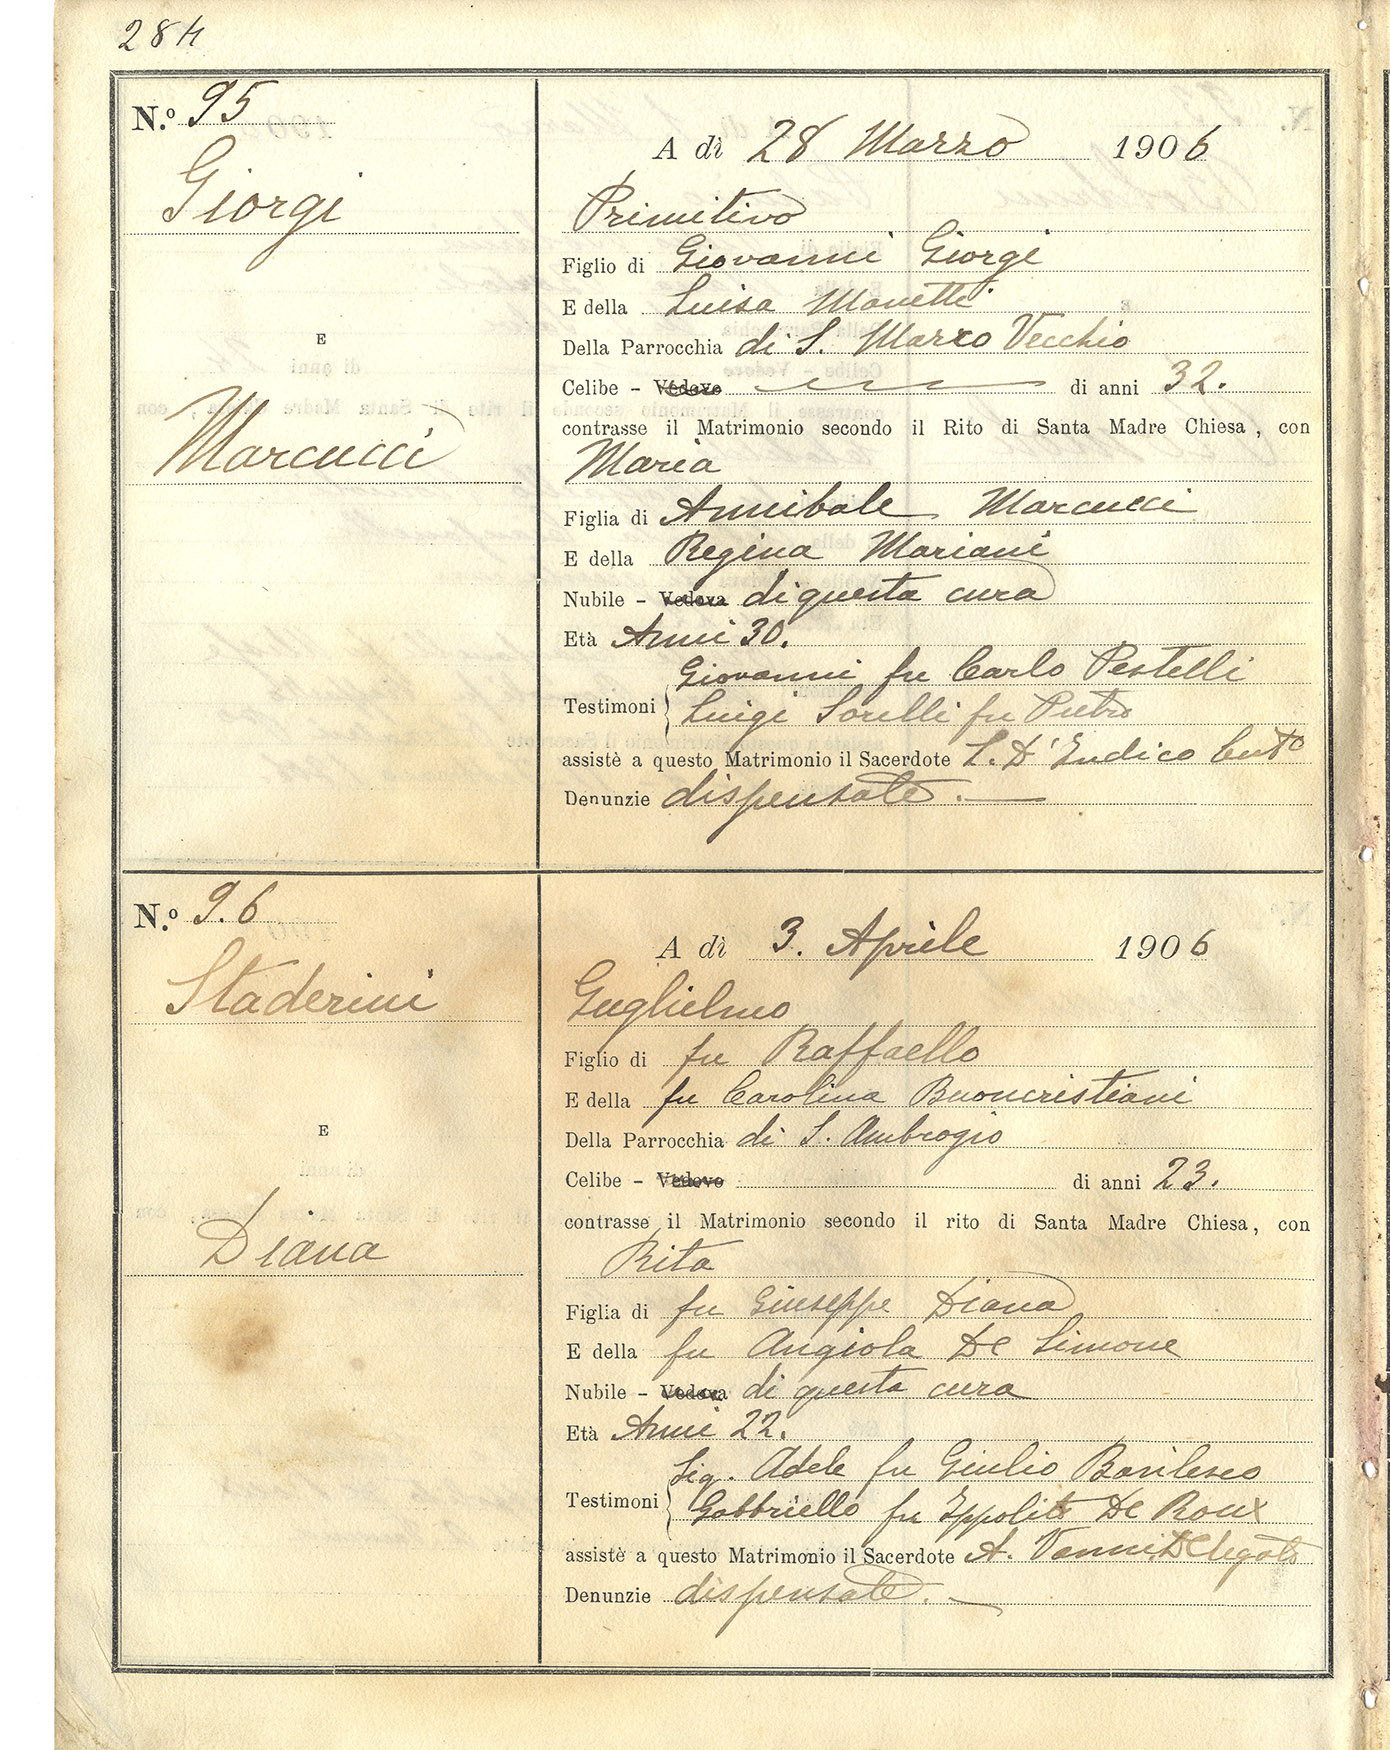 284
N.º 95
Giorgi
E
Marcucci
A dì 28 Marzo 1906
Primitivo
Figlio di Giovanni Giorgi
E della Luisa Manetti
Della Parrocchia di S. Marco Vecchio
Celibe - Vedovo di anni 32.
contrasse il Matrimonio secondo il Rito di Santa Madre Chiesa, con
Maria
Figlia di Annibale Marcucci
E della Regina Mariani
Nubile - Vedova di questa cura
Età Anni 30.
Giovanni fu Carlo Pestelli
Testimoni Luigi Sorelli fu Pietro
assistè a questo Matrimonio il Sacerdote L. D'Indico Cur.to
Denunzie dispensate.
N.º 96
Staderini
E
Diana
A dì 3. Aprile 1906
Guglielmo
Figlio di fu Raffaello
E della fu Carolina Buoncristiani
Della Parrocchia di S. Ambrogio
Celibe - Vedovo di anni 23.
contrasse il Matrimonio secondo il rito di Santa Madre Chiesa, con
Rita
Figlia di fu Giuseppe Diana
E della fu Angiola De Simone
Nubile - Vedova di questa cura
Età Anni 22.
Sig. Adele fu Giulio
Testimoni Gabbriello fu Ippolito De Roux
assistè a questo Matrimonio il Sacerdote A. Vanni Delegato
Denunzie dispensate.